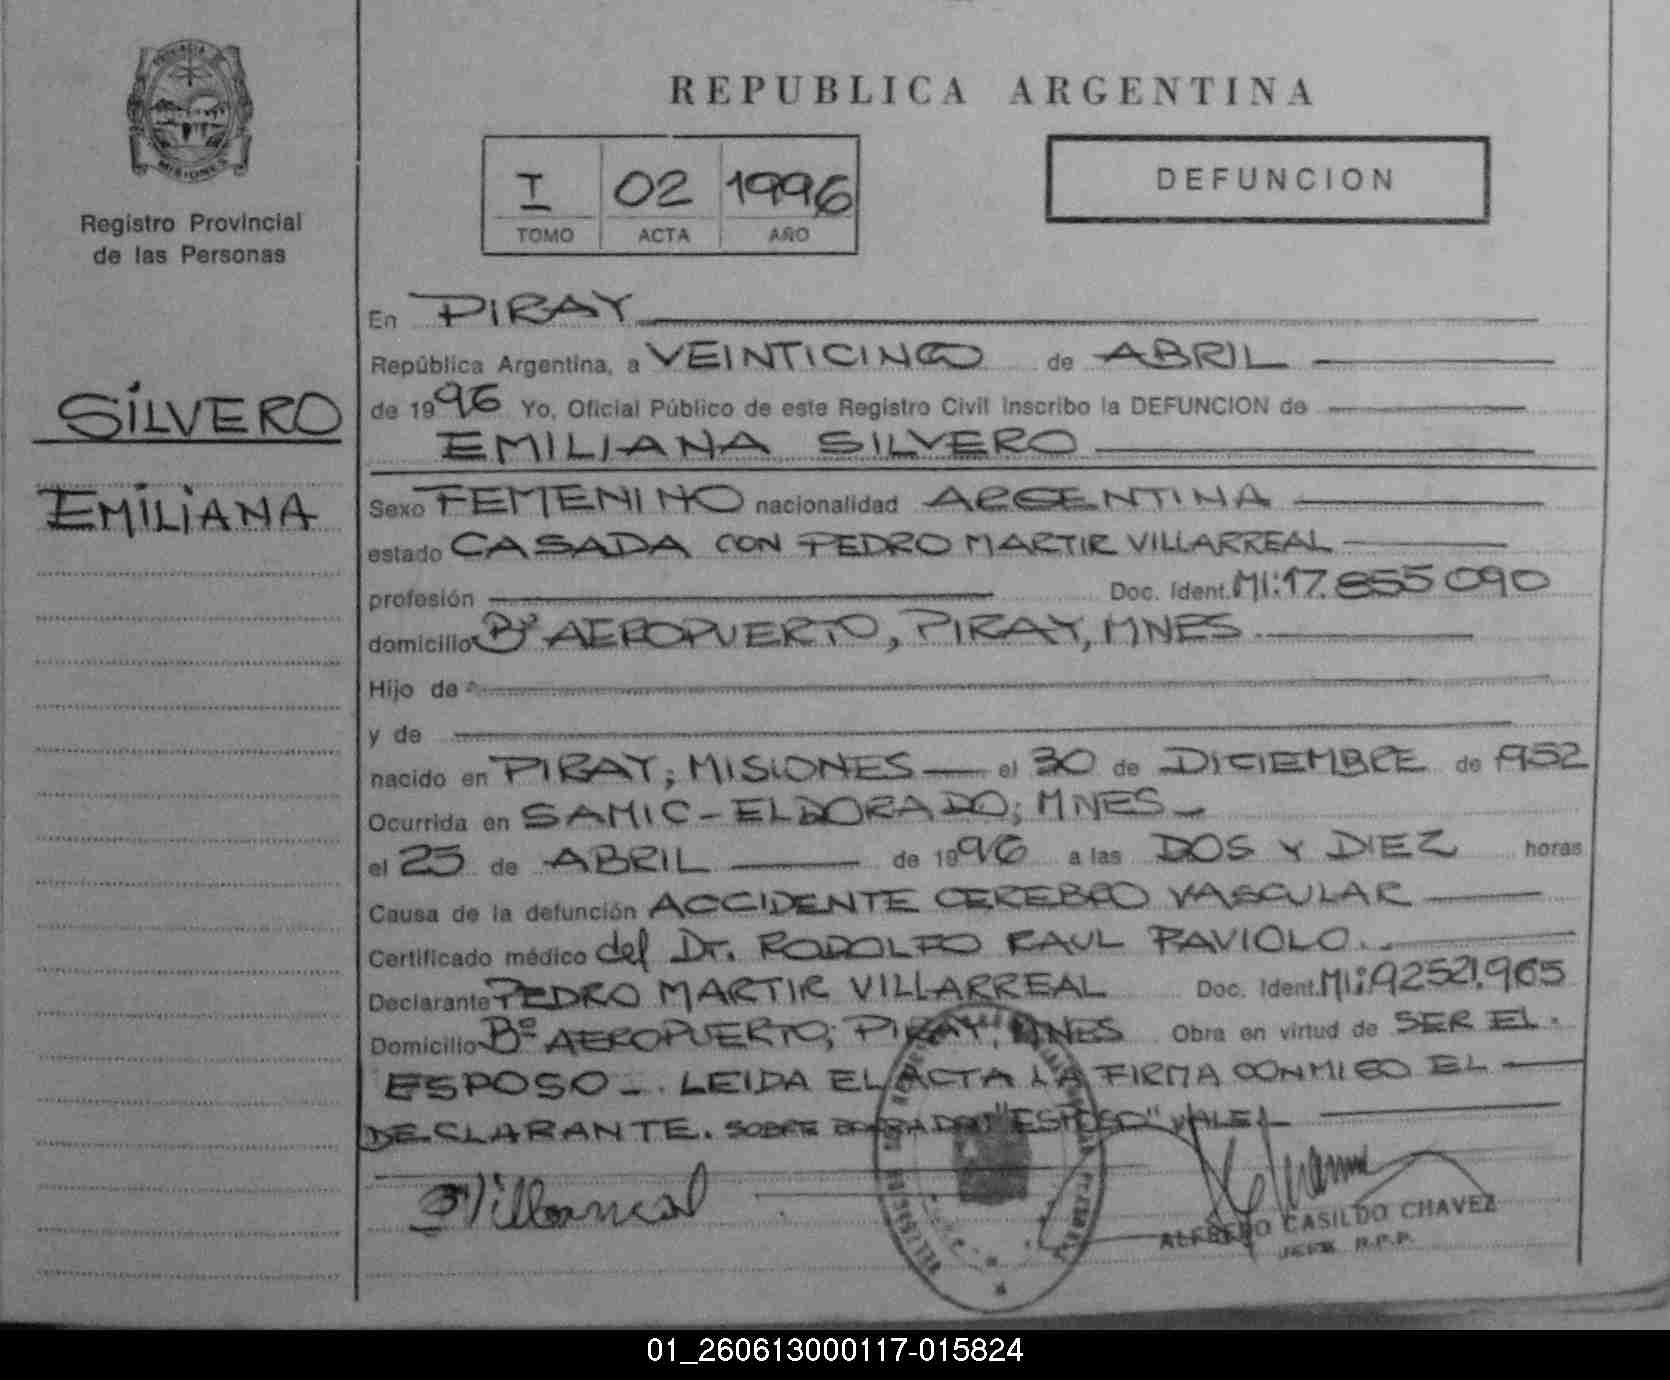 PROVINCIA DE
MISIONES
Registro Provincial
de las Personas
SILVERO
EMILIANA
REPUBLICA ARGENTINA
I 02 1996
TOMO ACTA AÑO
DEFUNCION
En PIRAY
República Argentina, a VEINTICINCO de ABRIL
de 1996 Yo, Oficial Público de este Registro Civil inscribo la DEFUNCION de
EMILIANA SILVERO
Sexo FEMENINO nacionalidad ARGENTINA
estado CASADA CON PEDRO MARTIR VILLARREAL
profesión Doc. Ident. MI:17.855090
domicilio Bº AEROPUERTO, PIRAY, MNES
Hijo de
y de
nacido en PIRAY, MISIONES el 30 de DICIEMBRE de 1952
Ocurrida en SAMIC-ELDORADO; MNES
el 25 de ABRIL de 1996 a las DOS Y DIEZ horas
Causa de la defunción ACCIDENTE CEREBRO VASCULAR
Certificado médico del Dr. RODOLFO RAUL PAVIOLO.
Declarante PEDRO MARTIR VILLARREAL Doc. Ident. MI:92521.965
Domicilio Bº AEROPUERTO; PIRAY, MNES Obra en virtud de SER EL
ESPOSO_. LEIDA EL ACTA LA FIRMA CONMIGO EL
DECLARANTE. SOBRE BORRADO: "ESPOSO" VALE
Villarreal
ALFREDO CASILDO CHAVEZ
JEFE R.P.P.
01_260613000117-015824